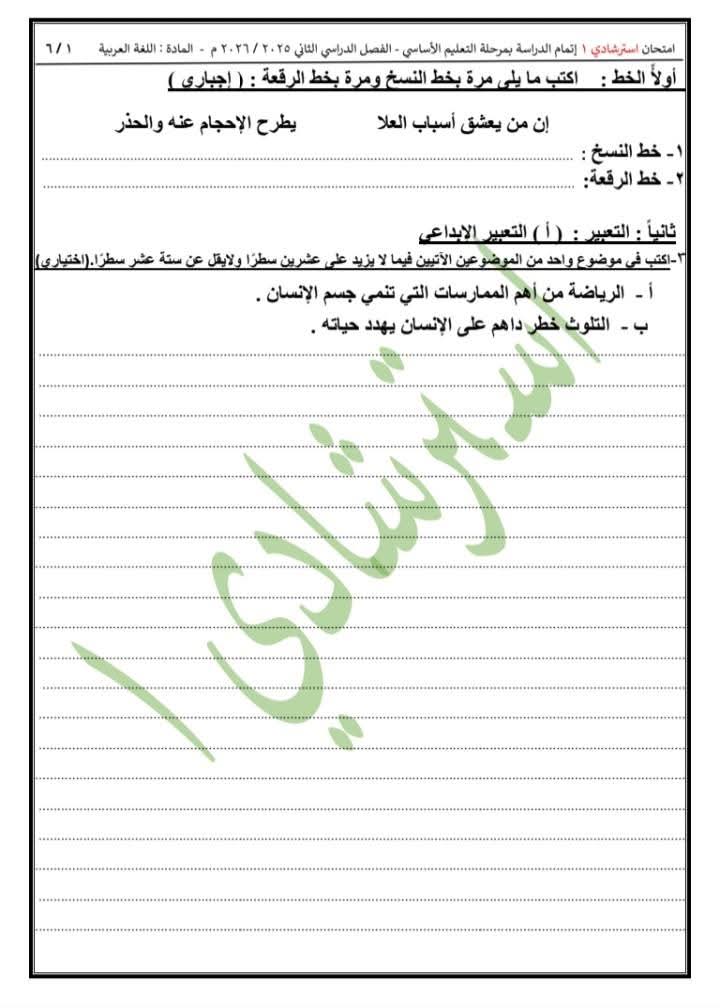 امتحان استرشادي ١ إتمام الدراسة بمرحلة التعليم الأساسي - الفصل الدراسي الثاني ٢٠٢٥ / ٢٠٢٦ م - المادة : اللغة العربية ١ / ٦
أولاً الخط : اكتب ما يلى مرة بخط النسخ ومرة بخط الرقعة : ( إجبارى )
إن من يعشق أسباب العلا يطرح الإحجام عنه والحذر
١- خط النسخ :
٢- خط الرقعة:
ثانياً : التعبير : ( أ ) التعبير الإبداعي
٣-اكتب في موضوع واحد من الموضوعين الآتيين فيما لا يزيد على عشرين سطرًا ولايقل عن ستة عشر سطرًا.(اختياري)
أ - الرياضة من أهم الممارسات التي تنمي جسم الإنسان .
ب - التلوث خطر داهم على الإنسان يهدد حياته .
استرشادي ١